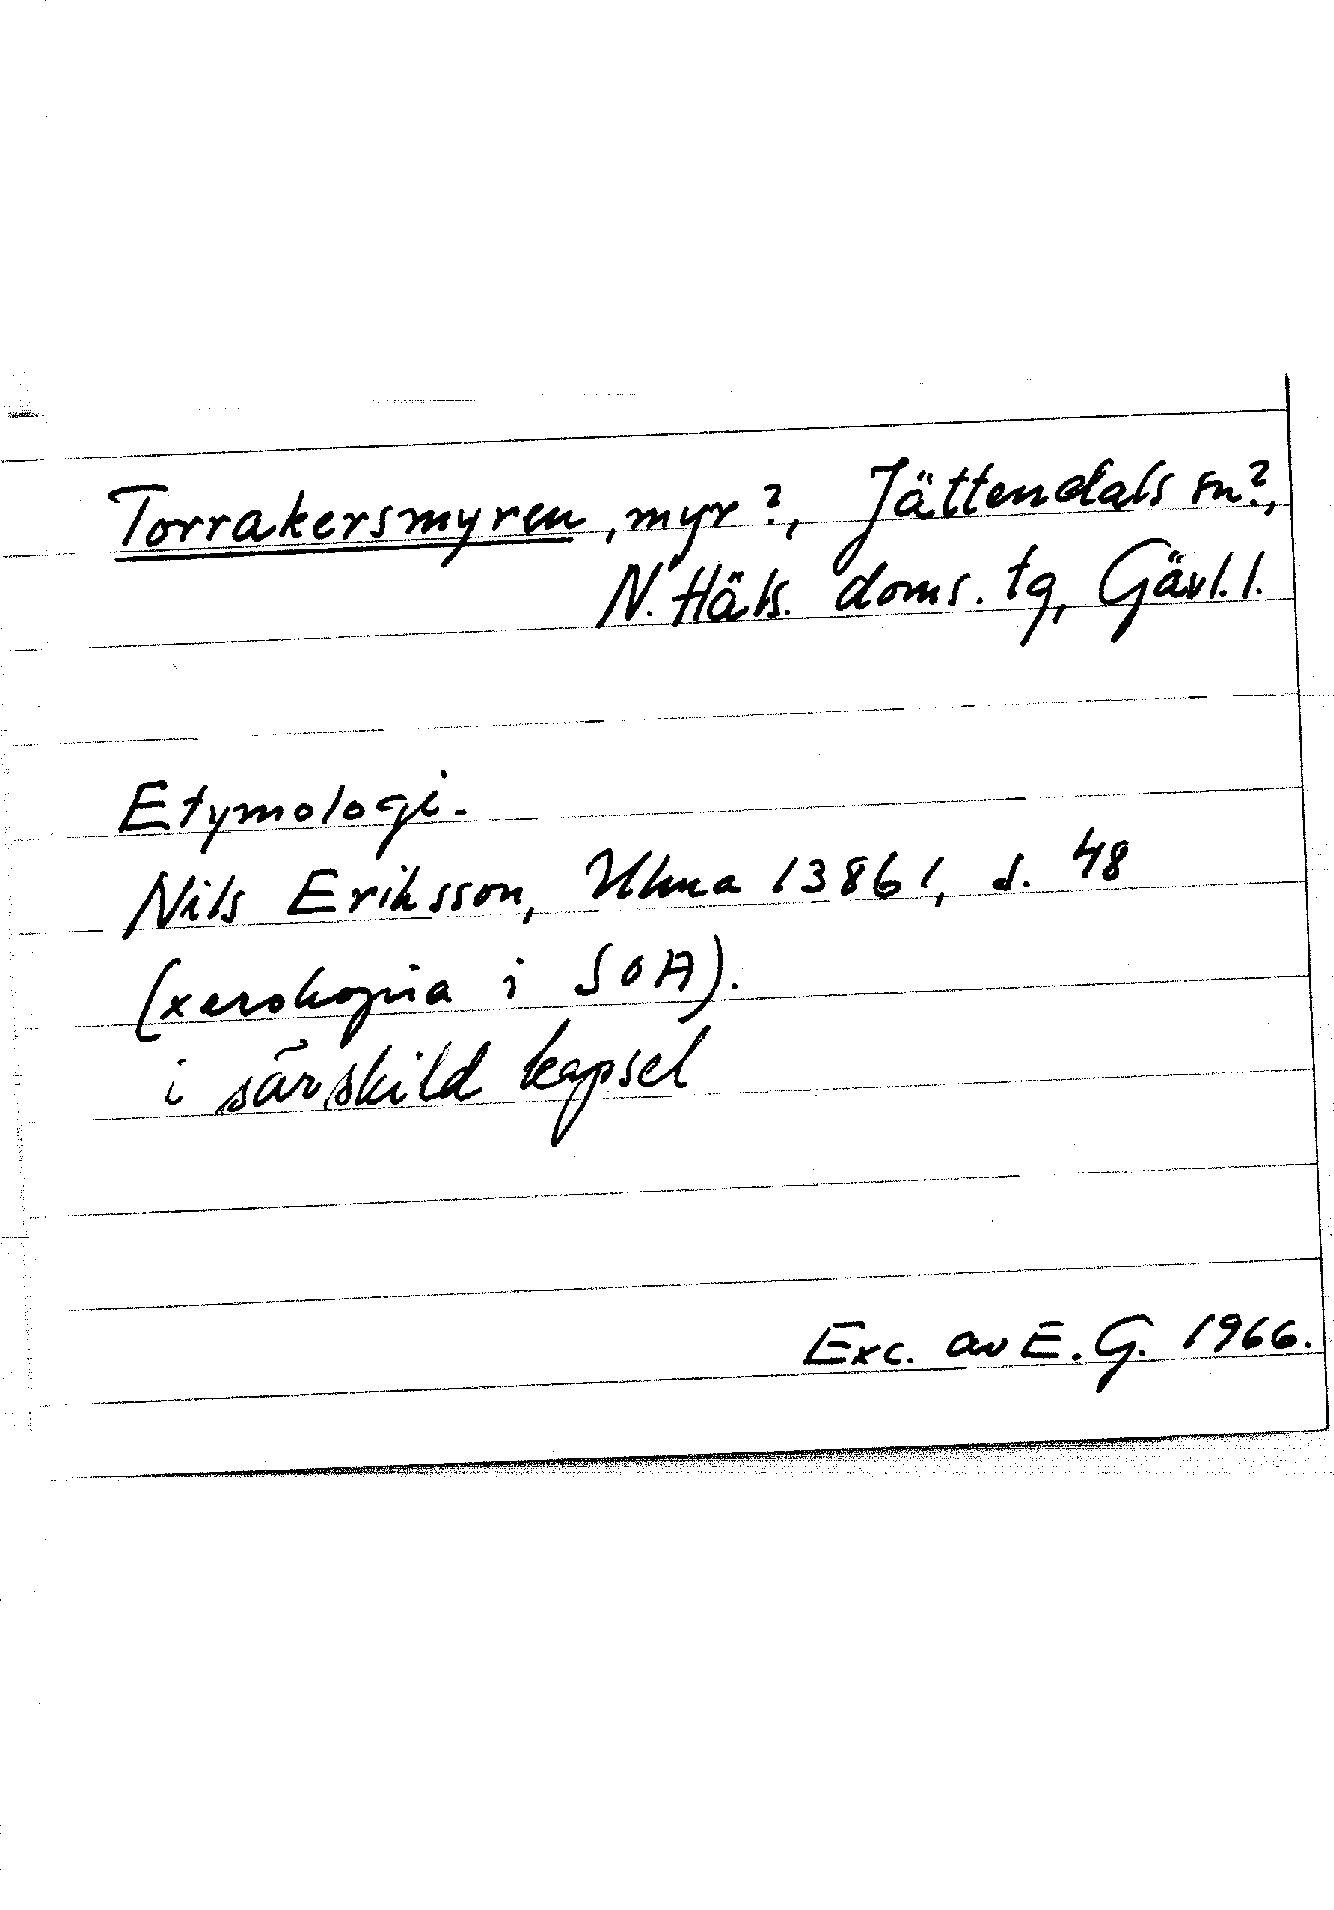 Torrakersmyren, myr?, Jättendals sn?,
N. Häls. doms. tg, Gävl. l.
Etymologi.
Nils Eriksson, Ulma 13861, s. 48
(xerokopia i SOA).
i särskild kapsel
Exc. av E. G. 1966.